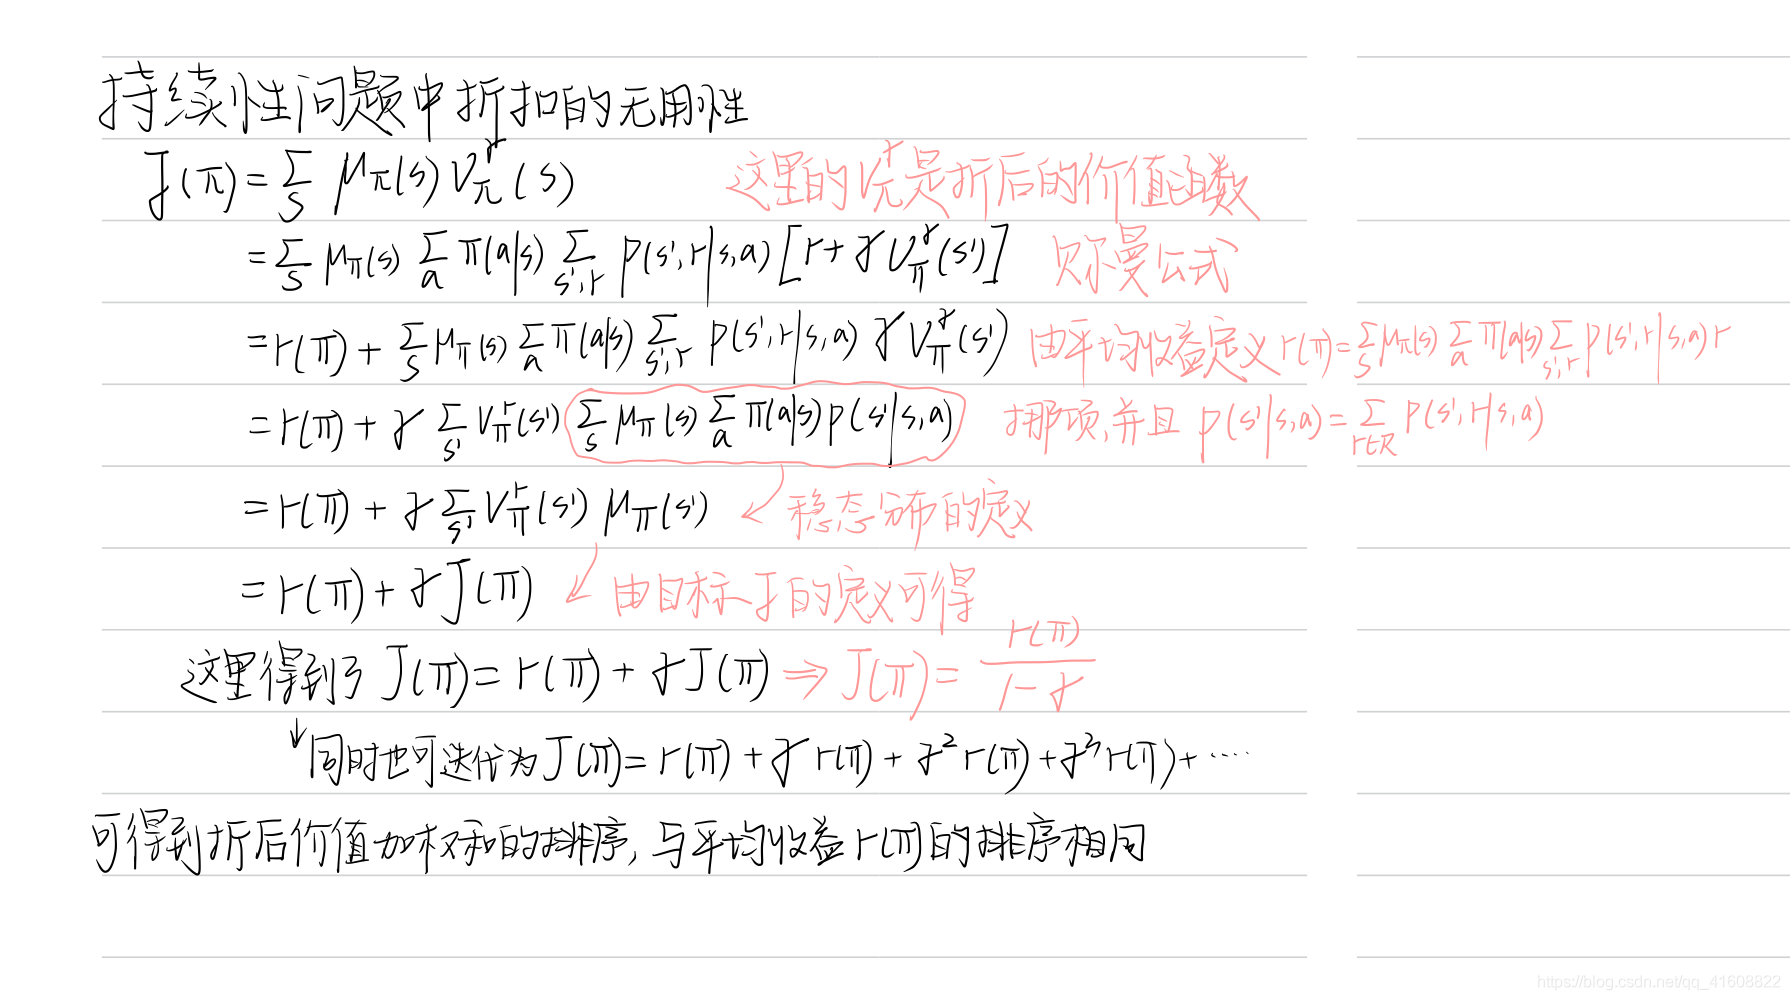 持续性问题中折扣的无用性
J(π) = Σ_s μ_π(s) V_π^γ(s) 这里的 V_π^γ 是折后的价值函数
= Σ_s μ_π(s) Σ_a π(a|s) Σ_{s',r} p(s',r|s,a) [r + γ V_π^γ(s')] 贝尔曼公式
= r(π) + Σ_s μ_π(s) Σ_a π(a|s) Σ_{s',r} p(s',r|s,a) γ V_π^γ(s') 由平均收益定义 r(π) = Σ_s μ_π(s) Σ_a π(a|s) Σ_{s',r} p(s',r|s,a) r
= r(π) + γ Σ_{s'} V_π^γ(s') Σ_s μ_π(s) Σ_a π(a|s) p(s'|s,a) 挪项,并且 p(s'|s,a) = Σ_{r∈R} p(s',r|s,a)
= r(π) + γ Σ_{s'} V_π^γ(s') μ_π(s') ↙ 稳态分布的定义
= r(π) + γ J(π) ↙ 由目标 J 的定义可得
这里得到了 J(π) = r(π) + γ J(π) ⇒ J(π) = r(π)/(1-γ)
↓ 同时也可迭代为 J(π) = r(π) + γ r(π) + γ² r(π) + γ³ r(π) + ····
可得到折后价值加权和的排序, 与平均收益 r(π) 的排序相同
https://blog.csdn.net/qq_41608822